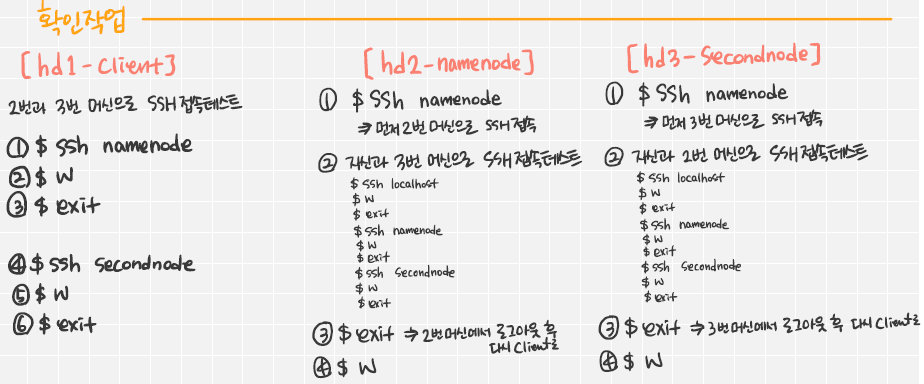 확인작업
[hd1-client]
2번과 3번 머신으로 SSH접속테스트
① $ ssh namenode
② $ W
③ $ exit
④ $ ssh secondnode
⑤ $ W
⑥ $ exit
[hd2-namenode]
① $ SSh namenode
⇒ 먼저 2번 머신으로 SSH접속
② 자신과 3번 머신으로 SSH접속테스트
$ SSh localhost
$ W
$ exit
$ SSh namenode
$ W
$ exit
$ SSh Secondnode
$ W
$ exit
③ $ exit ⇒ 2번머신에서 로그아웃 후
다시 Client로
④ $ W
[hd3-Secondnode]
① $ SSh namenode
⇒ 먼저 3번 머신으로 SSH접속
② 자신과 2번 머신으로 SSH접속테스트
$ SSh localhost
$ W
$ exit
$ SSh namenode
$ W
$ exit
$ SSh Secondnode
$ W
$ exit
③ $ exit ⇒ 3번머신에서 로그아웃 후 다시 Client로
④ $ W